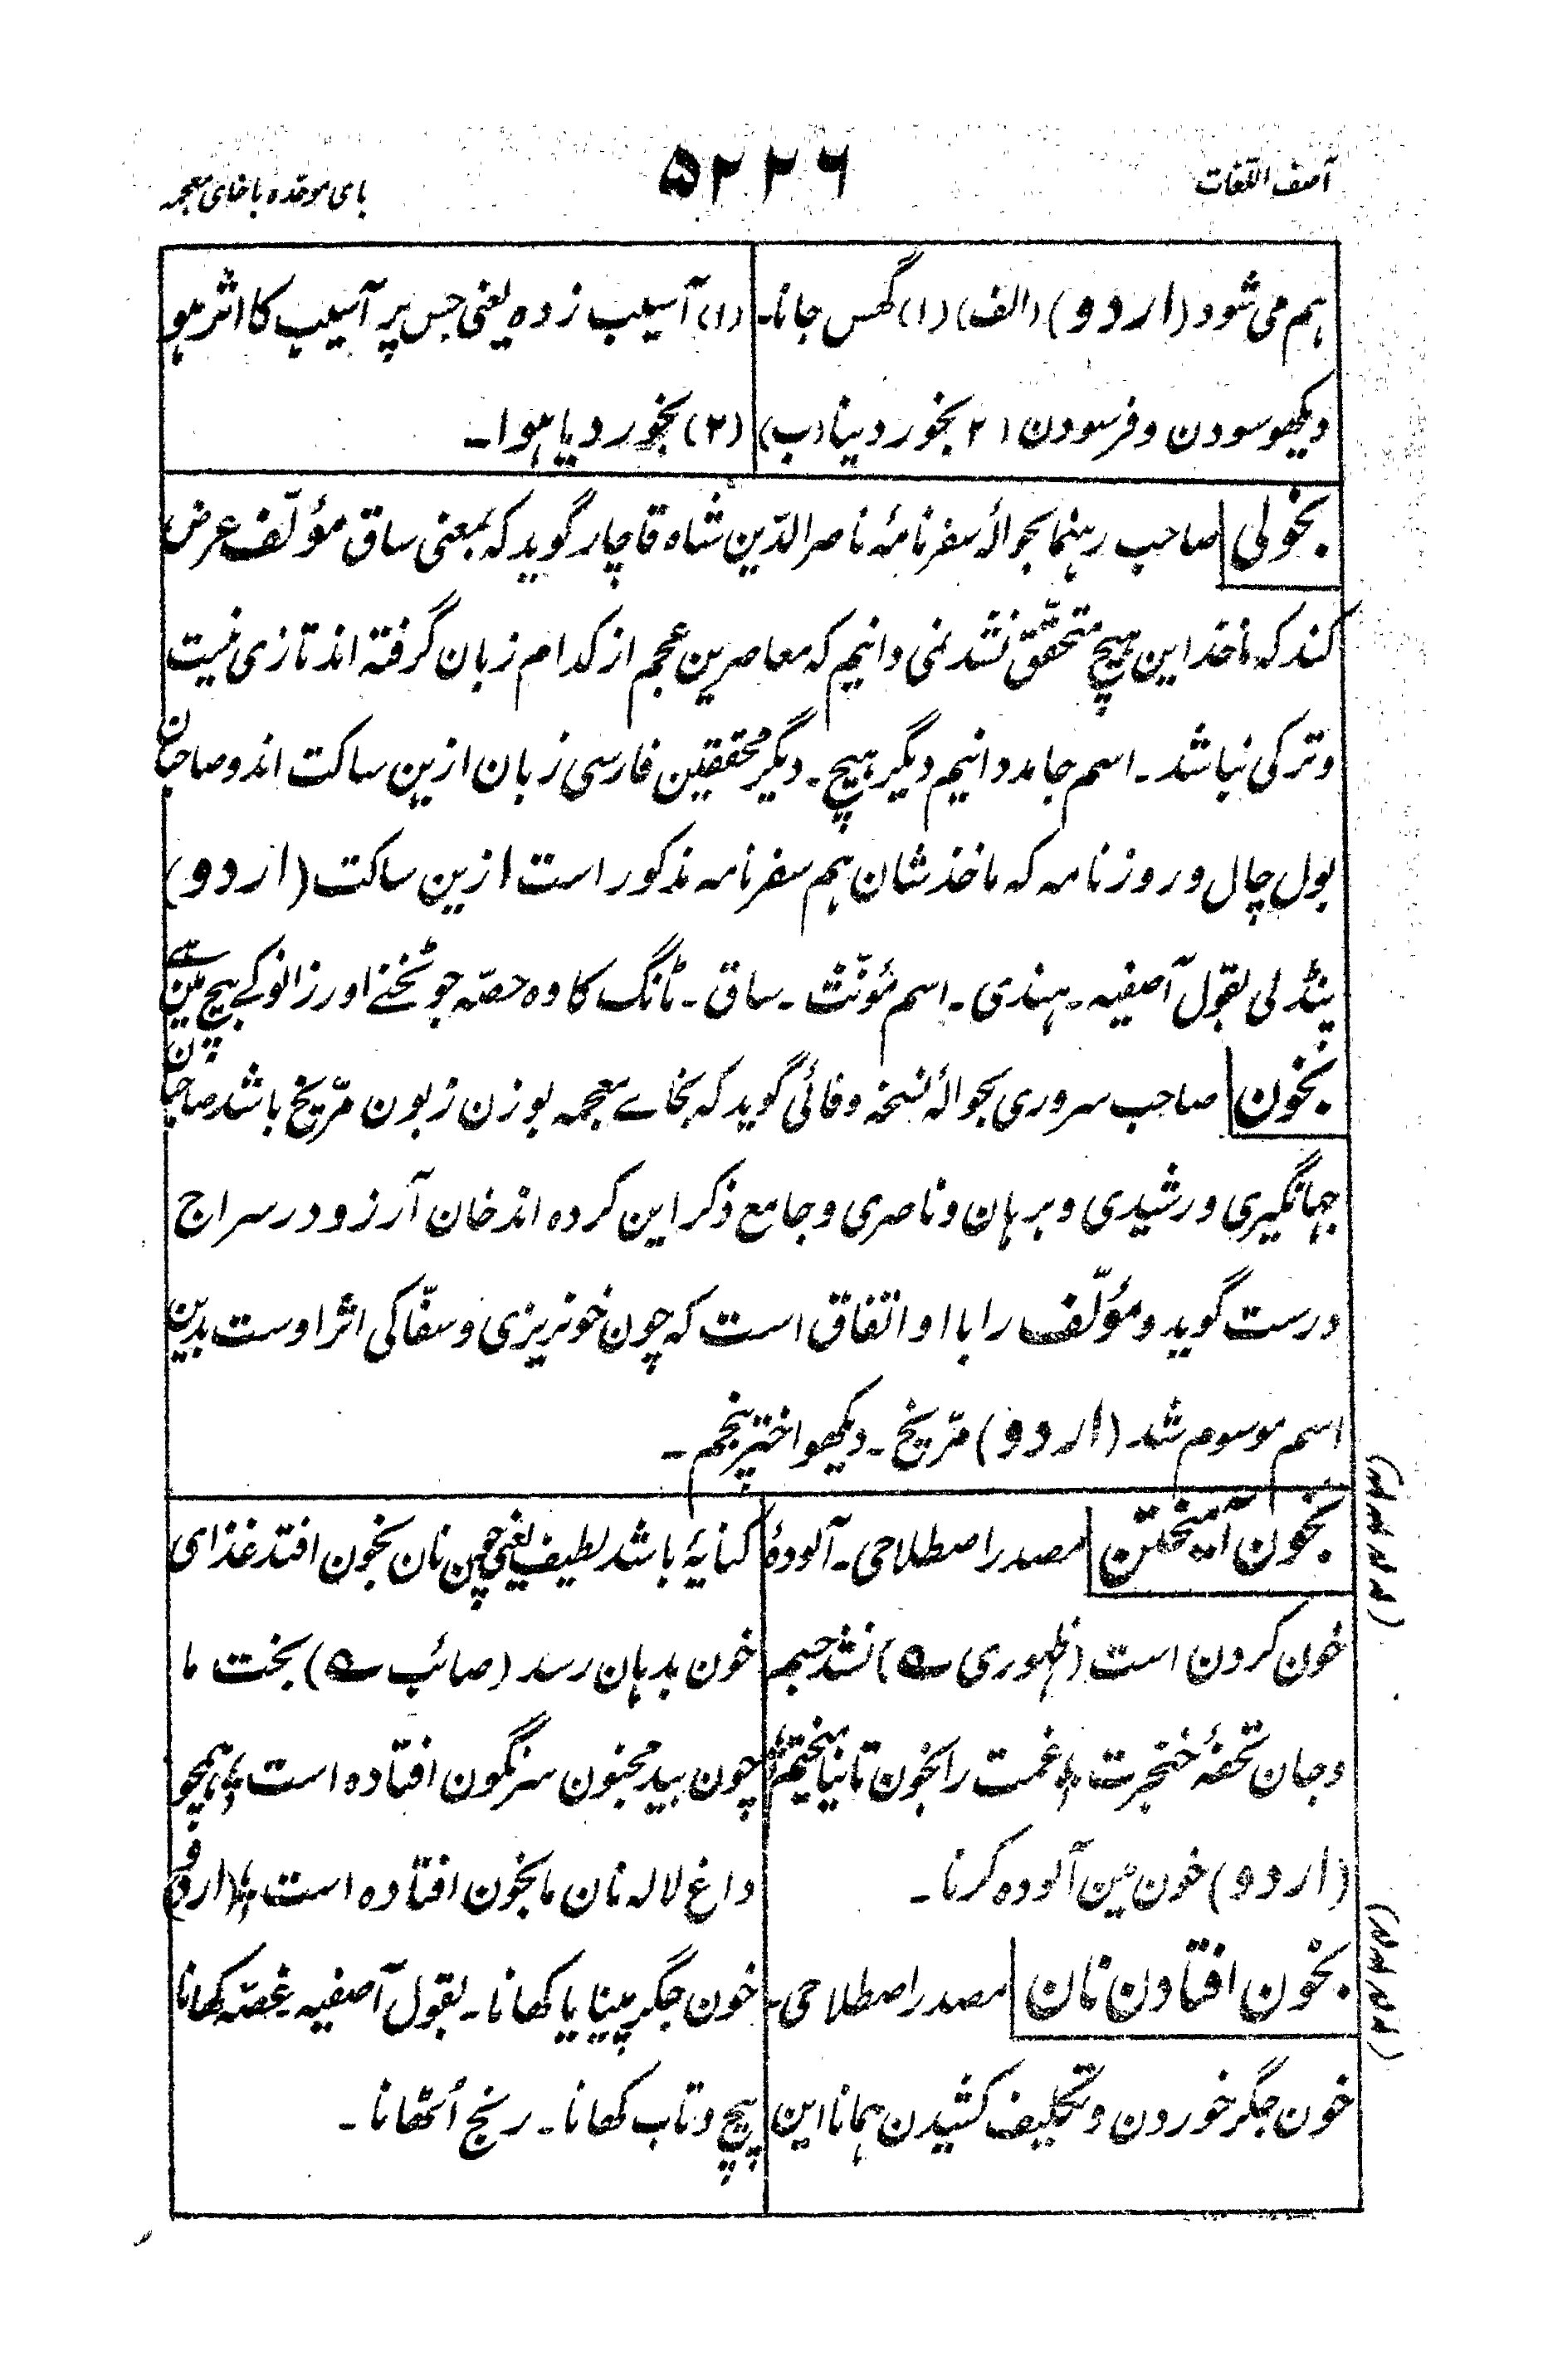 آصف اللغات
۵۲۲۶
بای موحده با خای معجمه
ہم می شود (اردو) (الف) (۱) گھس جانا۔
دیکھو سودن و فرسودن (۲) بخور دینا (ب)
(۱) آسیب زدہ یعنی جس پر آسیب کا اثر ہو
(۲) بخور دیا ہوا۔
بخولی صاحب رہنما بحوالۂ سفرنامۂ ناصر الدّین شاہ قاچار گوید کہ بمعنی ساق مؤلّف عرض
کند کہ ماخذ این ہیچ متحقّق نشد نمی دانیم کہ معاصرین عجم از کدام زبان گرفتہ اند تازی نیست
و ترکی نباشد۔ اسم جامد دانیم دیگر ہیچ۔ دیگر محققین فارسی زبان ازین ساکت اند و صاحبان
بول چال و روزنامہ کہ ماخذ شان ہم سفرنامہ مذکور است ازین ساکت (اردو)
پنڈلی بقول آصفیہ۔ ہندی۔ اسم مؤنّث۔ ساق۔ ٹانگ کا وہ حصّہ جو ٹخنے اور زانو کے بیچ مین ہے
بخون صاحب سروری بحوالۂ نسخۂ وفائی گوید کہ بخاے معجمہ بوزن زبون مرّیخ باشد صاحبان
جہانگیری و رشیدی و برہان و ناصری و جامع ذکر این کردہ اند خان آرزو در سراج
درست گوید و مؤلّف را با او اتفاق است کہ چون خونریزی و سفّاکی اثر اوست بدین
اسم موسوم شد (اردو) مرّیخ۔ دیکھو اختر پنجم۔
بخون آمیختن مصدر اصطلاحی۔ آلودۂ
خون کردن است (ظہوری ؎) نشد جیمہ
و جان تحفۂ خنجرت ؛ غمت را بخون تا نیامیختیم ؛
(اردو) خون مین آلودہ کرنا۔
بخون افتادن نان مصدر اصطلاحی۔
خون جگر خوردن و تکلیف کشیدن ہمانا این
کنایۂ باشد لطیف یعنی چون نان بخون افتد غذای
خون بدہان رسد (صائب ؎) بخت ما
چون بید مجنون سرنگون افتادہ است ؛ ہمچو
داغ لالہ نان ما بخون افتادہ است ؛ (اردو)
خون جگر پینا یا کھانا۔ بقول آصفیہ غصّہ کھانا
پیچ و تاب کھانا۔ رنج اُٹھانا۔